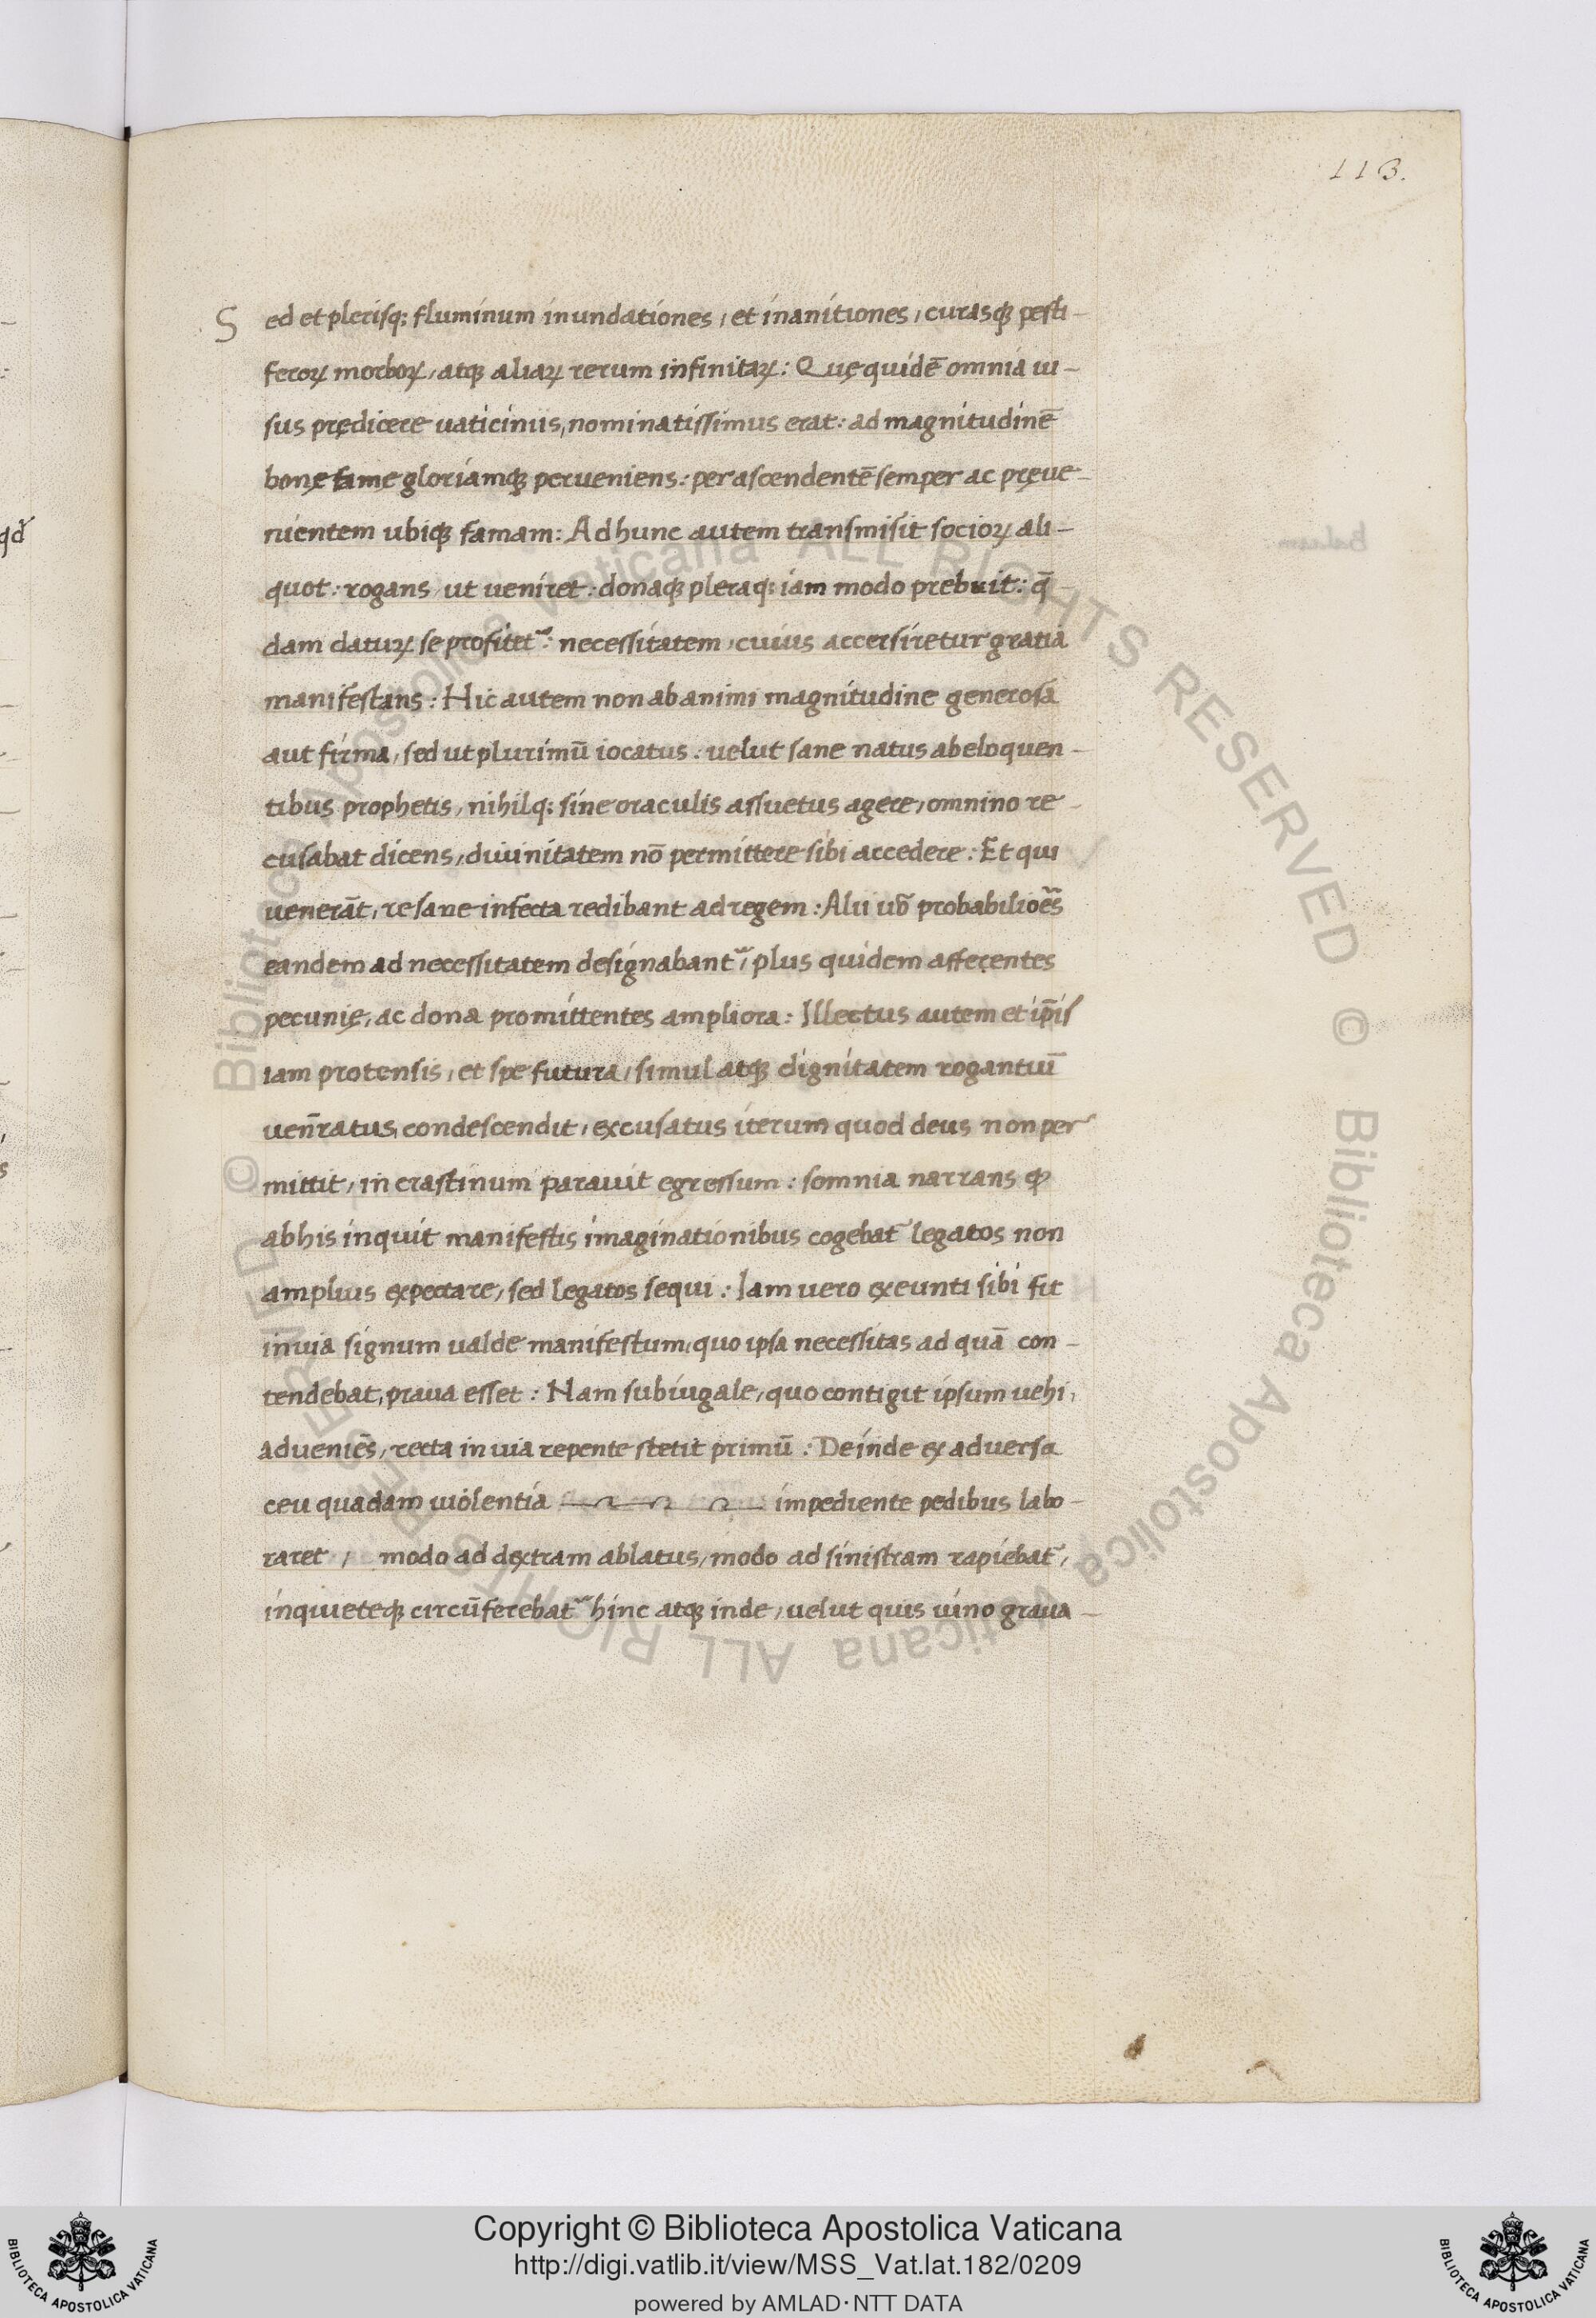 113.
Sed et plerisq; fluminum inundationes, et inanitiones, curasqꝫ pesti-
feroꝝ morboꝝ, atqꝫ aliaꝝ rerum infinitaꝝ: Quę quidē omnia ui-
sus prędicere uaticiniis, nominatissimus erat: ad magnitudinē
bonę fame gloriamqꝫ perueniens: per ascendentē semper ac pręue-
nientem ubiqꝫ famam: Ad hunc autem transmisit socioꝝ ali-
quot: rogans ut ueniret: donaqꝫ pleraq; iam modo prebuit: q̄-
dam datuꝝ se profitet᷑: necessitatem, cuius accersiretur gratia
manifestans: Hic autem non ab animi magnitudine generosa
aut firma, sed ut plurimū iocatus: uelut sane natus ab eloquen-
tibus prophetis, nihilq; sine oraculis assuetus agere, omnino re-
cusabat dicens, diuinitatem nō permittere sibi accedere: Et qui
uenerāt, re sane infecta redibant ad regem: Alii uō probabilioēs
eandem ad necessitatem designabant᷑, plus quidem afferentes
pecunię, ac dona promittentes ampliora: Illectus autem et ip̄is
iam protensis, et spe futura, simul atqꝫ dignitatem rogantiū
uen̄ratus, condescendit, excusatus iterum quod deus non per
mittit, in crastinum parauit egressum: somnia narrans ꝙ
ab his inquit manifestis imaginationibus cogebat᷑ legatos non
amplius expectare, sed legatos sequi: Iam uero exeunti sibi fit
in uia signum ualde manifestum, quo ipsa necessitas ad quā con-
tendebat, praua esset: Nam subiugale, quo contigit ipsum uehi,
adueniēs, recta in uia repente stetit primū: Deinde ex aduersa
ceu quadam uiolentia impediente pedibus labo-
raret, modo ad dextram ablatus, modo ad sinistram rapiebat᷑,
inquieteqꝫ circūferebat᷑ hinc atqꝫ inde, uelut quis uino graua-
© Biblioteca Apostolica Vaticana ALL RIGHTS RESERVED © Biblioteca Apostolica Vaticana ALL RIGHTS RESERVED
Copyright © Biblioteca Apostolica Vaticana
http://digi.vatlib.it/view/MSS_Vat.lat.182/0209
powered by AMLAD·NTT DATA
BIBLIOTECA APOSTOLICA VATICANA
BIBLIOTECA APOSTOLICA VATICANA